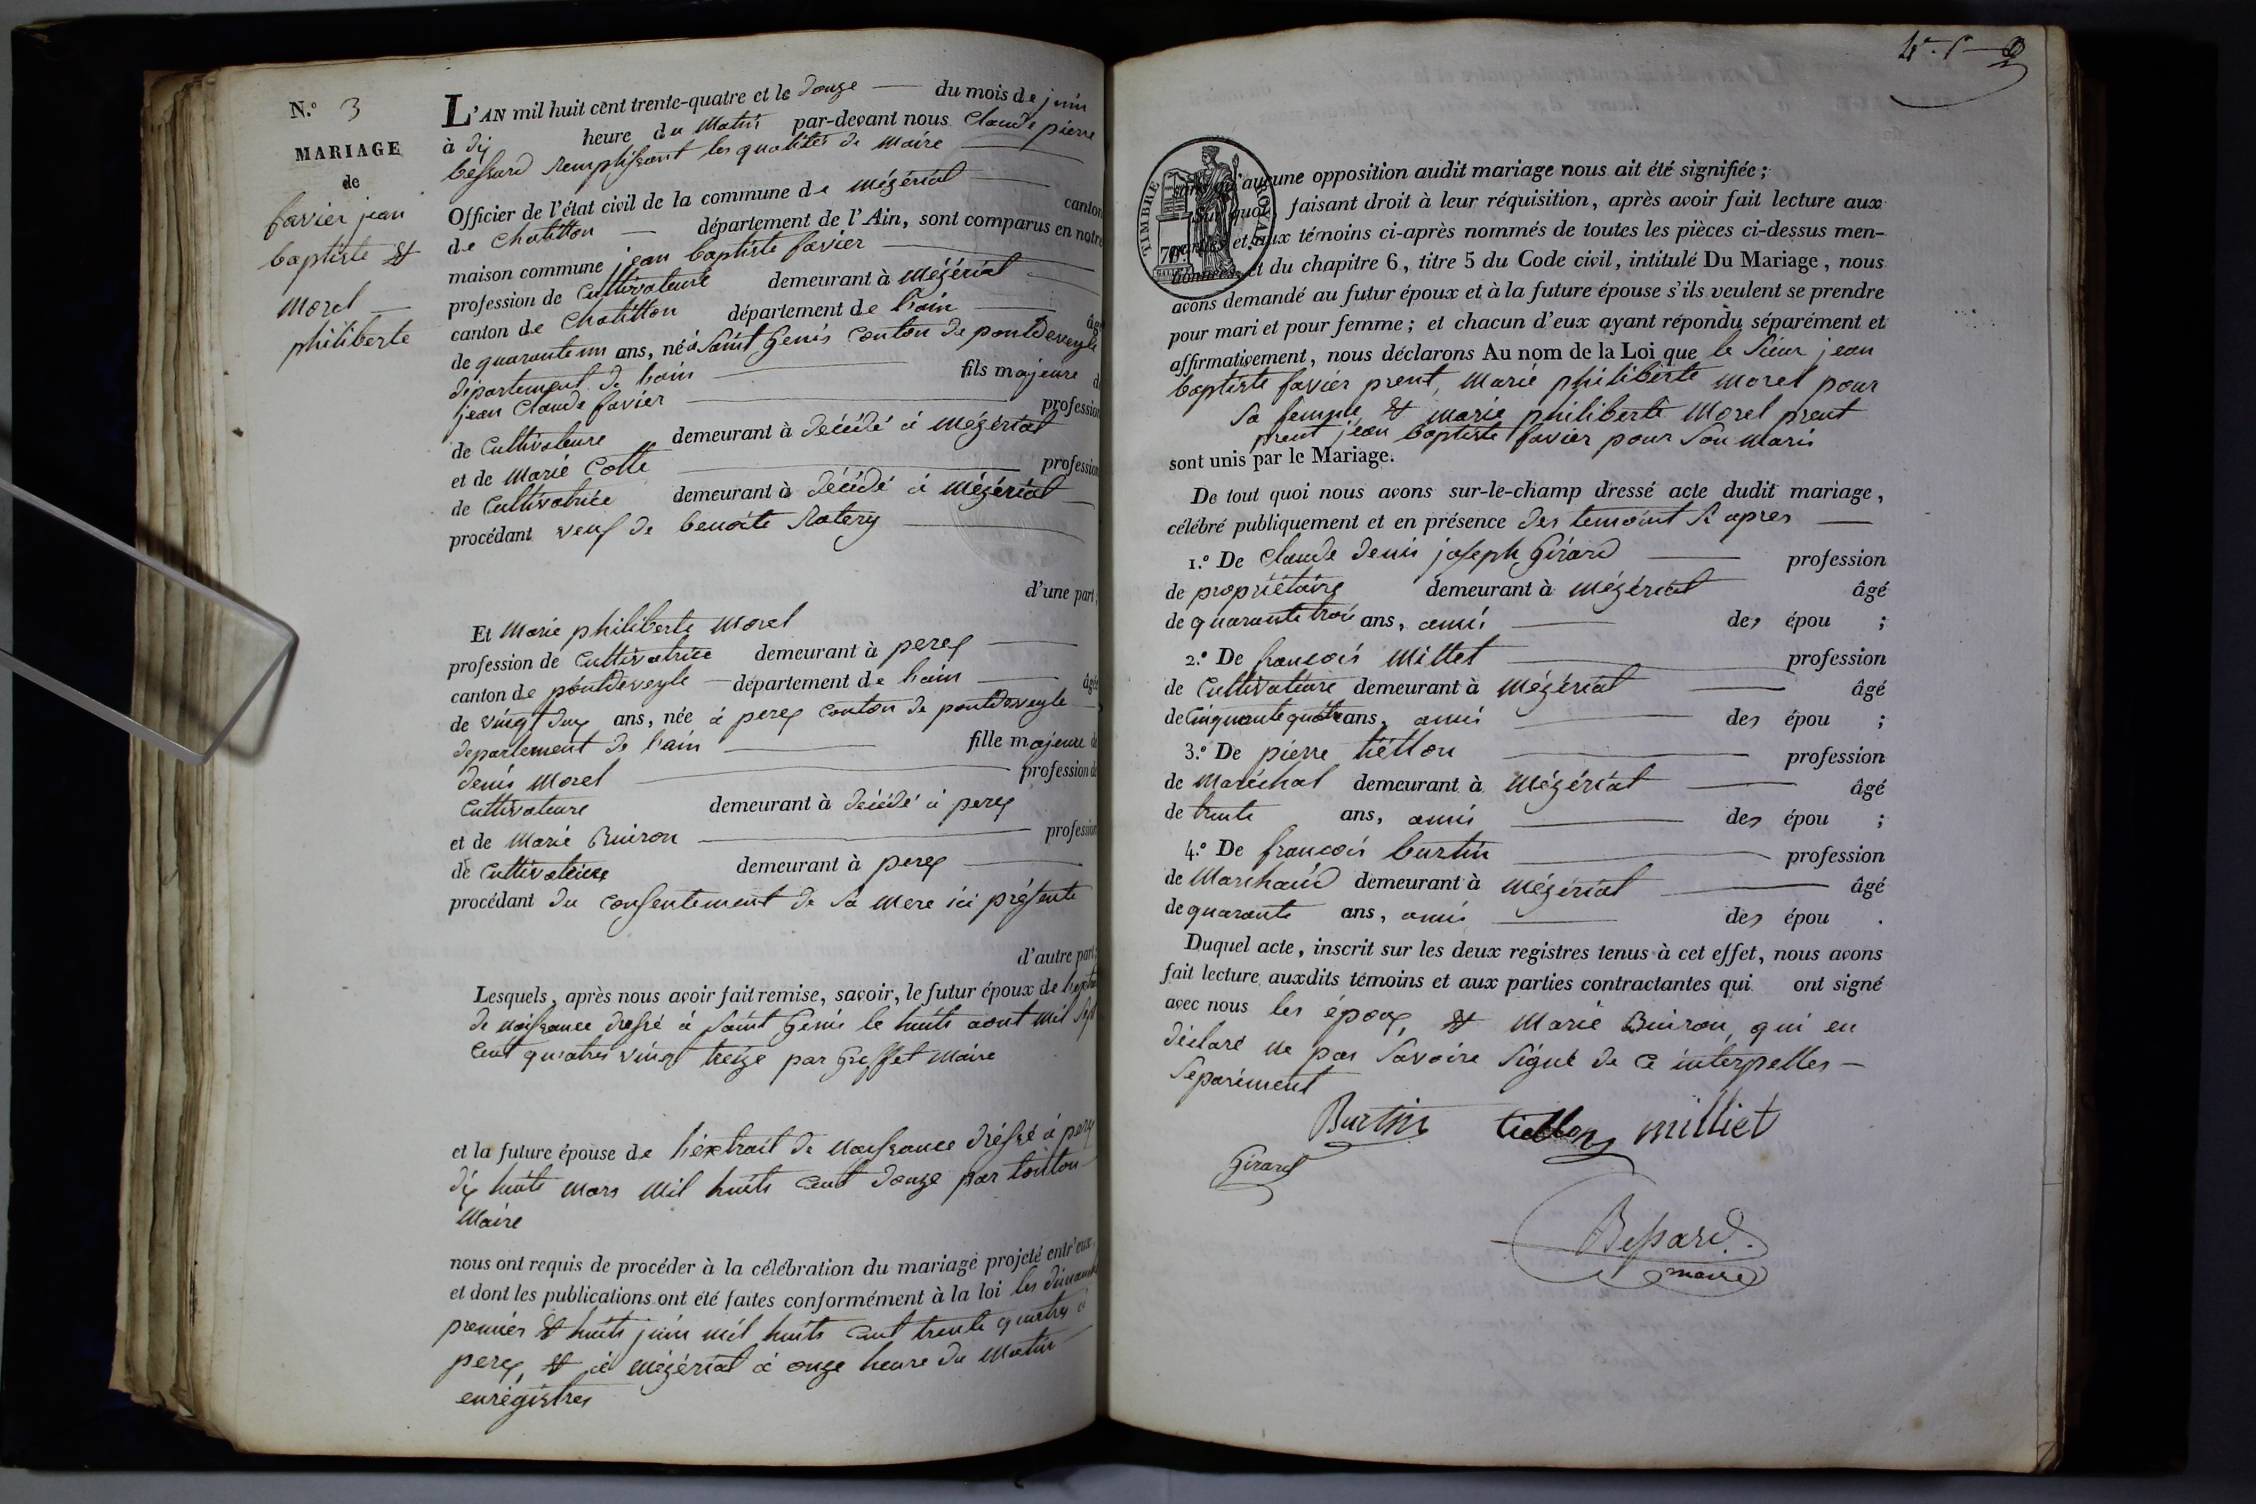 N.º 3
MARIAGE
de
favier jean
baptiste &
morel
philiberte
L'AN mil huit cent trente-quatre et le douze du mois de juin
à dix heure du matin par-devant nous Claude pierre
bessard remplissant les qualités de maire
Officier de l'état civil de la commune de mézériat canton
de Chatillon département de l'Ain, sont comparus en notre
maison commune jean baptiste favier
profession de Cultivateure demeurant à mézériat
canton de Chatillon département de l'ain âgé
de quarante un ans, né à Saint Genis Canton de pontdeveyle
département de l'ain fils majeure d
jean Claude favier profession
de Cultivateure demeurant à décédé à mézériat
et de Marie Cotte profession
de Cultivatrice demeurant à décédé à mézériat
procédant veuf de benoite
d'une part;
Et Marie philiberte morel
profession de Cultivatrice demeurant à perex
canton de pontdeveyle département de l'ain âgée
de vingt dux ans, née à perex Canton de pontdeveyle
departement de l'ain fille majeure de
denis morel profession de
Cultivateure demeurant à décédé à perex
et de Marie Buiron profession
de Cultivatrice demeurant à perex
procédant du Consentement de sa mere ici présente
d'autre part;
Lesquels, après nous avoir fait remise, savoir, le futur époux de
de naissance dressé à Saint Genis le huits aout mil Sept
Cent quatres vingt treize par Greffet maire
et la future épouse de l'éxtrait de naissance dréssé à perex
dix huits mars mil huits Cent douze par
maire
nous ont requis de procéder à la célébration du mariage projeté entr'eux,
et dont les publications ont été faites conformément à la loi les dimanche
premier & huits juin mil huits cent trente quatres à
perex, & à mézériat à onze heure du matin
enrégistres
TIMBRE ROYAL
sans qu'aucune opposition audit mariage nous ait été signifiée;
Sur quoi, faisant droit à leur réquisition, après avoir fait lecture aux
parties et aux témoins ci-après nommés de toutes les pièces ci-dessus men-
tionnées, et du chapitre 6, titre 5 du Code civil, intitulé Du Mariage, nous
avons demandé au futur époux et à la future épouse s'ils veulent se prendre
pour mari et pour femme; et chacun d'eux ayant répondu séparément et
affirmativement, nous déclarons Au nom de la Loi que le Sieur jean
baptiste favier prent, Marie philiberte morel pour
Sa femme, & marie philiberte Morel prent
prent jean baptiste favier pour Son maris
sont unis par le Mariage.
De tout quoi nous avons sur-le-champ dressé acte dudit mariage,
célébré publiquement et en présence des temoint Si apres
1.º De Claude denis joseph Girard profession
de propriétaire demeurant à mézériat âgé
de quarante trois ans, amis des épou ;
2.º De françois Millet profession
de Cultivateure demeurant à mézériat âgé
de Cinquante quatre ans, amis des épou ;
3.º De pierre tiellon profession
de Maréchal demeurant à mézériat âgé
de trente ans, amis des épou ;
4.º De françois burtin profession
de Marchand demeurant à mézériat âgé
de quarante ans, amis des épou .
Duquel acte, inscrit sur les deux registres tenus à cet effet, nous avons
fait lecture auxdits témoins et aux parties contractantes qui ont signé
avec nous les époux, & Marie Buiron, qui en
déclaré ne pas Savoire Signé de Ce interpelles
Séparément
Burtin tiellon milliet
Girard
Bessard.
maire